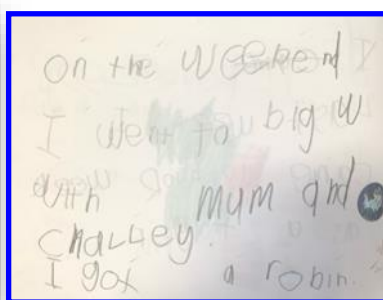 on the weekend
I went to big W
with mum and
Challey.
I got a robin.